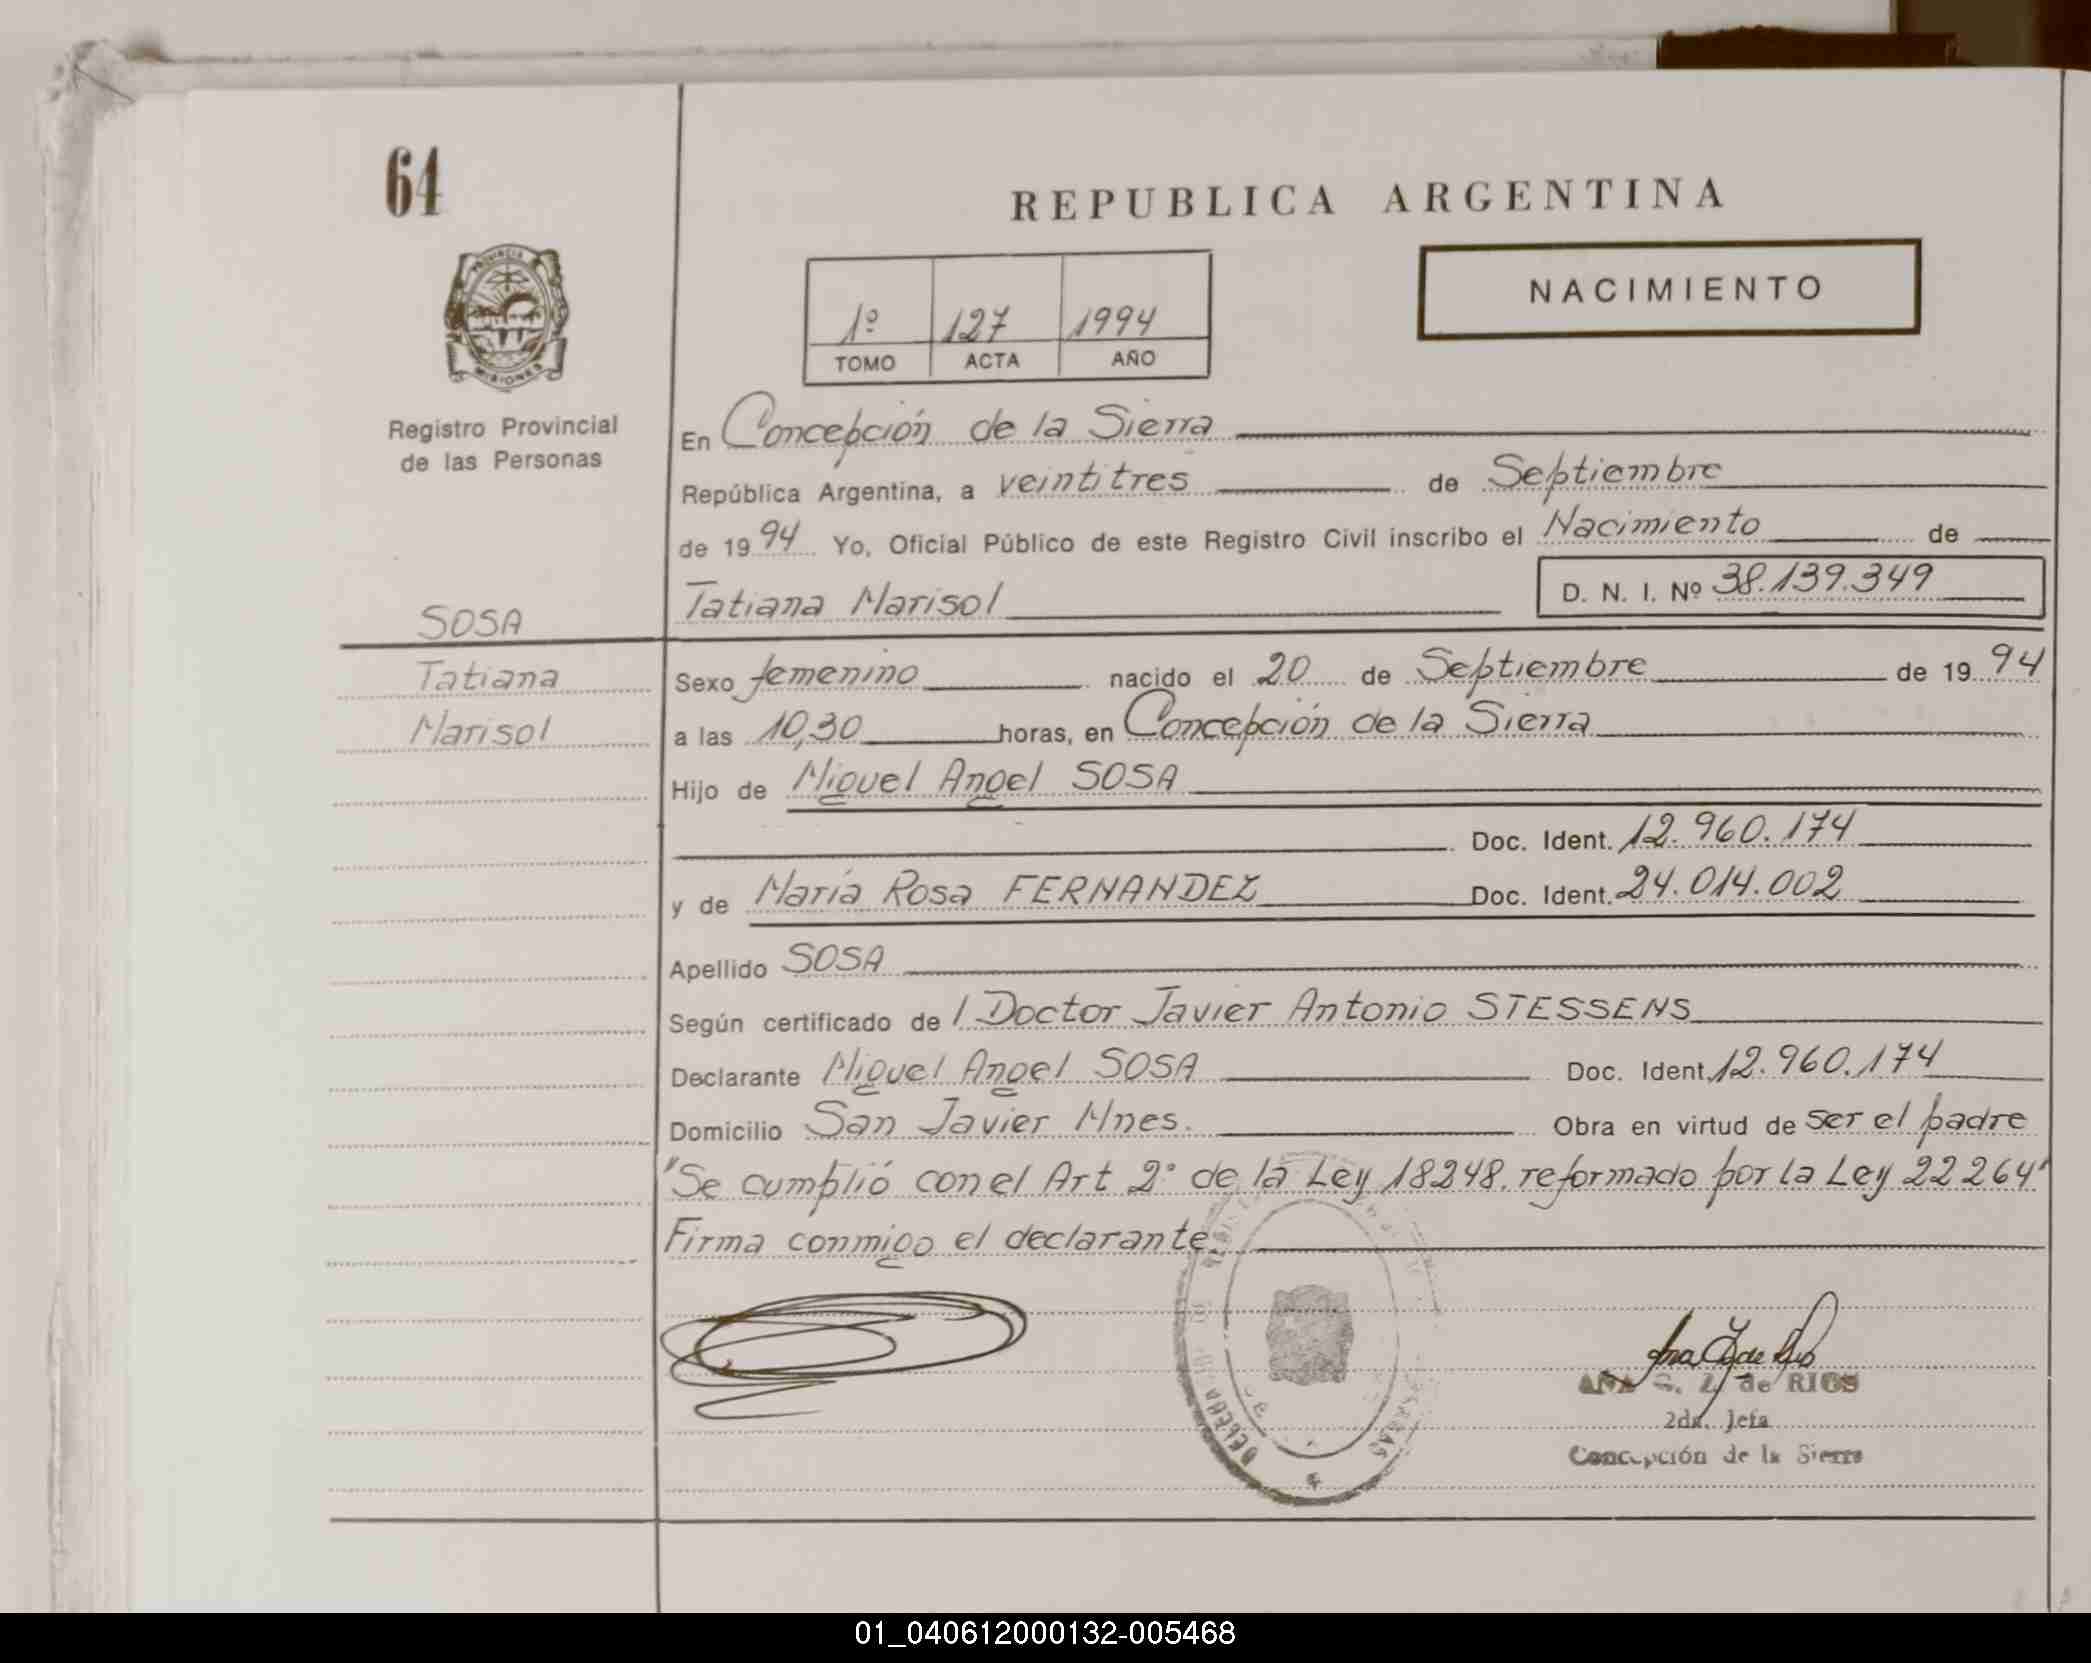 64
REPUBLICA ARGENTINA
PROVINCIA
MISIONES
1º 127 1994
TOMO ACTA AÑO
NACIMIENTO
Registro Provincial
de las Personas
En Concepción de la Sierra
República Argentina, a veintitres de Septiembre
de 1994 Yo, Oficial Público de este Registro Civil inscribo el Nacimiento de
Tatiana Marisol D. N. I. Nº 38.139.349
SOSA
Tatiana
Marisol
Sexo femenino nacido el 20 de Septiembre de 1994
a las 10,30 horas, en Concepción de la Sierra
Hijo de Miguel Angel SOSA
Doc. Ident. 12.960.174
y de María Rosa FERNANDEZ Doc. Ident. 24.014.002
Apellido SOSA
Según certificado del Doctor Javier Antonio STESSENS
Declarante Miguel Angel SOSA Doc. Ident. 12.960.174
Domicilio San Javier Mnes. Obra en virtud de ser el padre
"Se cumplió con el Art 2º de la Ley 18248. reformado por la Ley 22264"
Firma conmigo el declarante.
ANA G. Z. de RIOS
2da. Jefa
Concepción de la Sierra
01_040612000132-005468